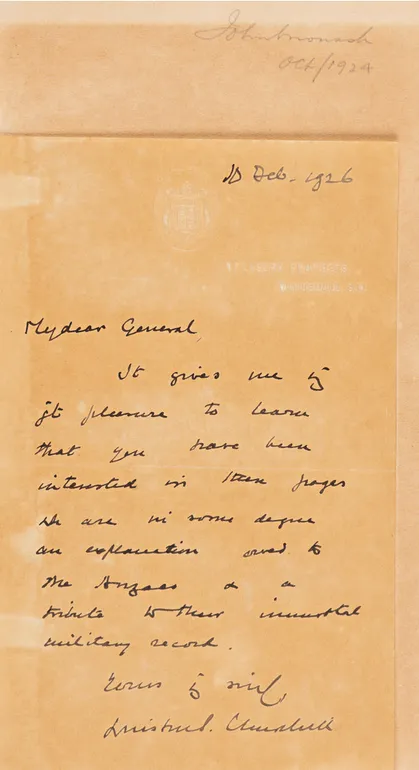 John Monash
Oct/1924
10 Feb. 1926
TREASURY CHAMBERS
WHITEHALL, S.W.
My dear General,
It gives me vy
gt pleasure to learn
that you have been
interested in these pages
wh are in some degree
an explanation owed to
the Anzacs & a
tribute to their immortal
military record.
Yours vy sincly,
Winston S. Churchill